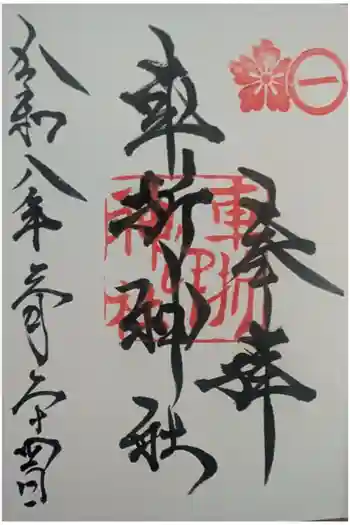 一
奉拝
車折神社
車折
神社
令和八年月十日